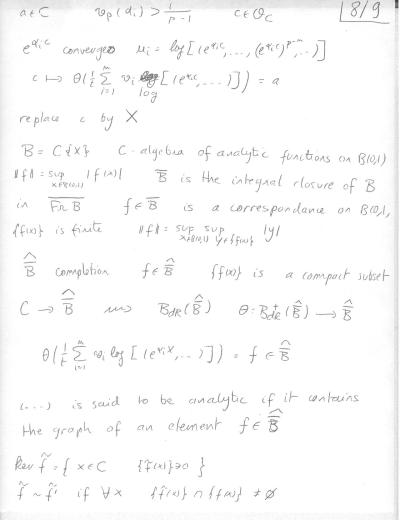 a ∈ C   v_p(α_i) > 1/(p-1)   c ∈ O_C   8/9
e^{α_i c} converges   u_i = log[(e^{α_i c}, ..., (e^{α_i c})^{p^{-n}}, ..)]
c ↦ θ(1/t Σ_{i=1}^m v_i log[(e^{α_i c}, ...)]) = a
log
replace c by X
B = C{X}   C-algebra of analytic functions on B(0,1)
‖f‖ = sup_{x∈B(0,1)} |f(x)|   B̄ is the integral closure of B
in \overline{Fr B}   f ∈ B̄ is a correspondance on B(0,1),
{f(x)} is finite   ‖f‖ = sup_{x∈B(0,1)} sup_{y∈{f(x)}} |y|
\hat{B̄} completion   f ∈ \hat{B̄}   {f(x)} is a compact subset
C → \hat{B̄}   ⇝   B_{dR}(\hat{B̄})   θ: B_{dR}^+(\hat{B̄}) → \hat{B̄}
θ(1/t Σ_{i=1}^m v_i log[(e^{α_i X}, ...)]) = f ∈ \hat{B̄}
(...) is said to be analytic if it contains
the graph of an element f ∈ \hat{B̄}
Ker f̃ = { x ∈ C   {f̃(x)} ∋ 0 }
f̃ ~ f̃' if ∀x   {f̃(x)} ∩ {f̃'(x)} ≠ ∅